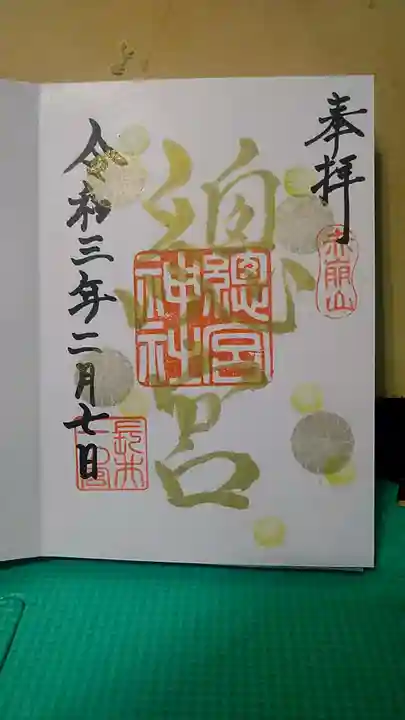 奉拝
赤崩山
總宮
總宮
神社
令和三年二月七日
長井